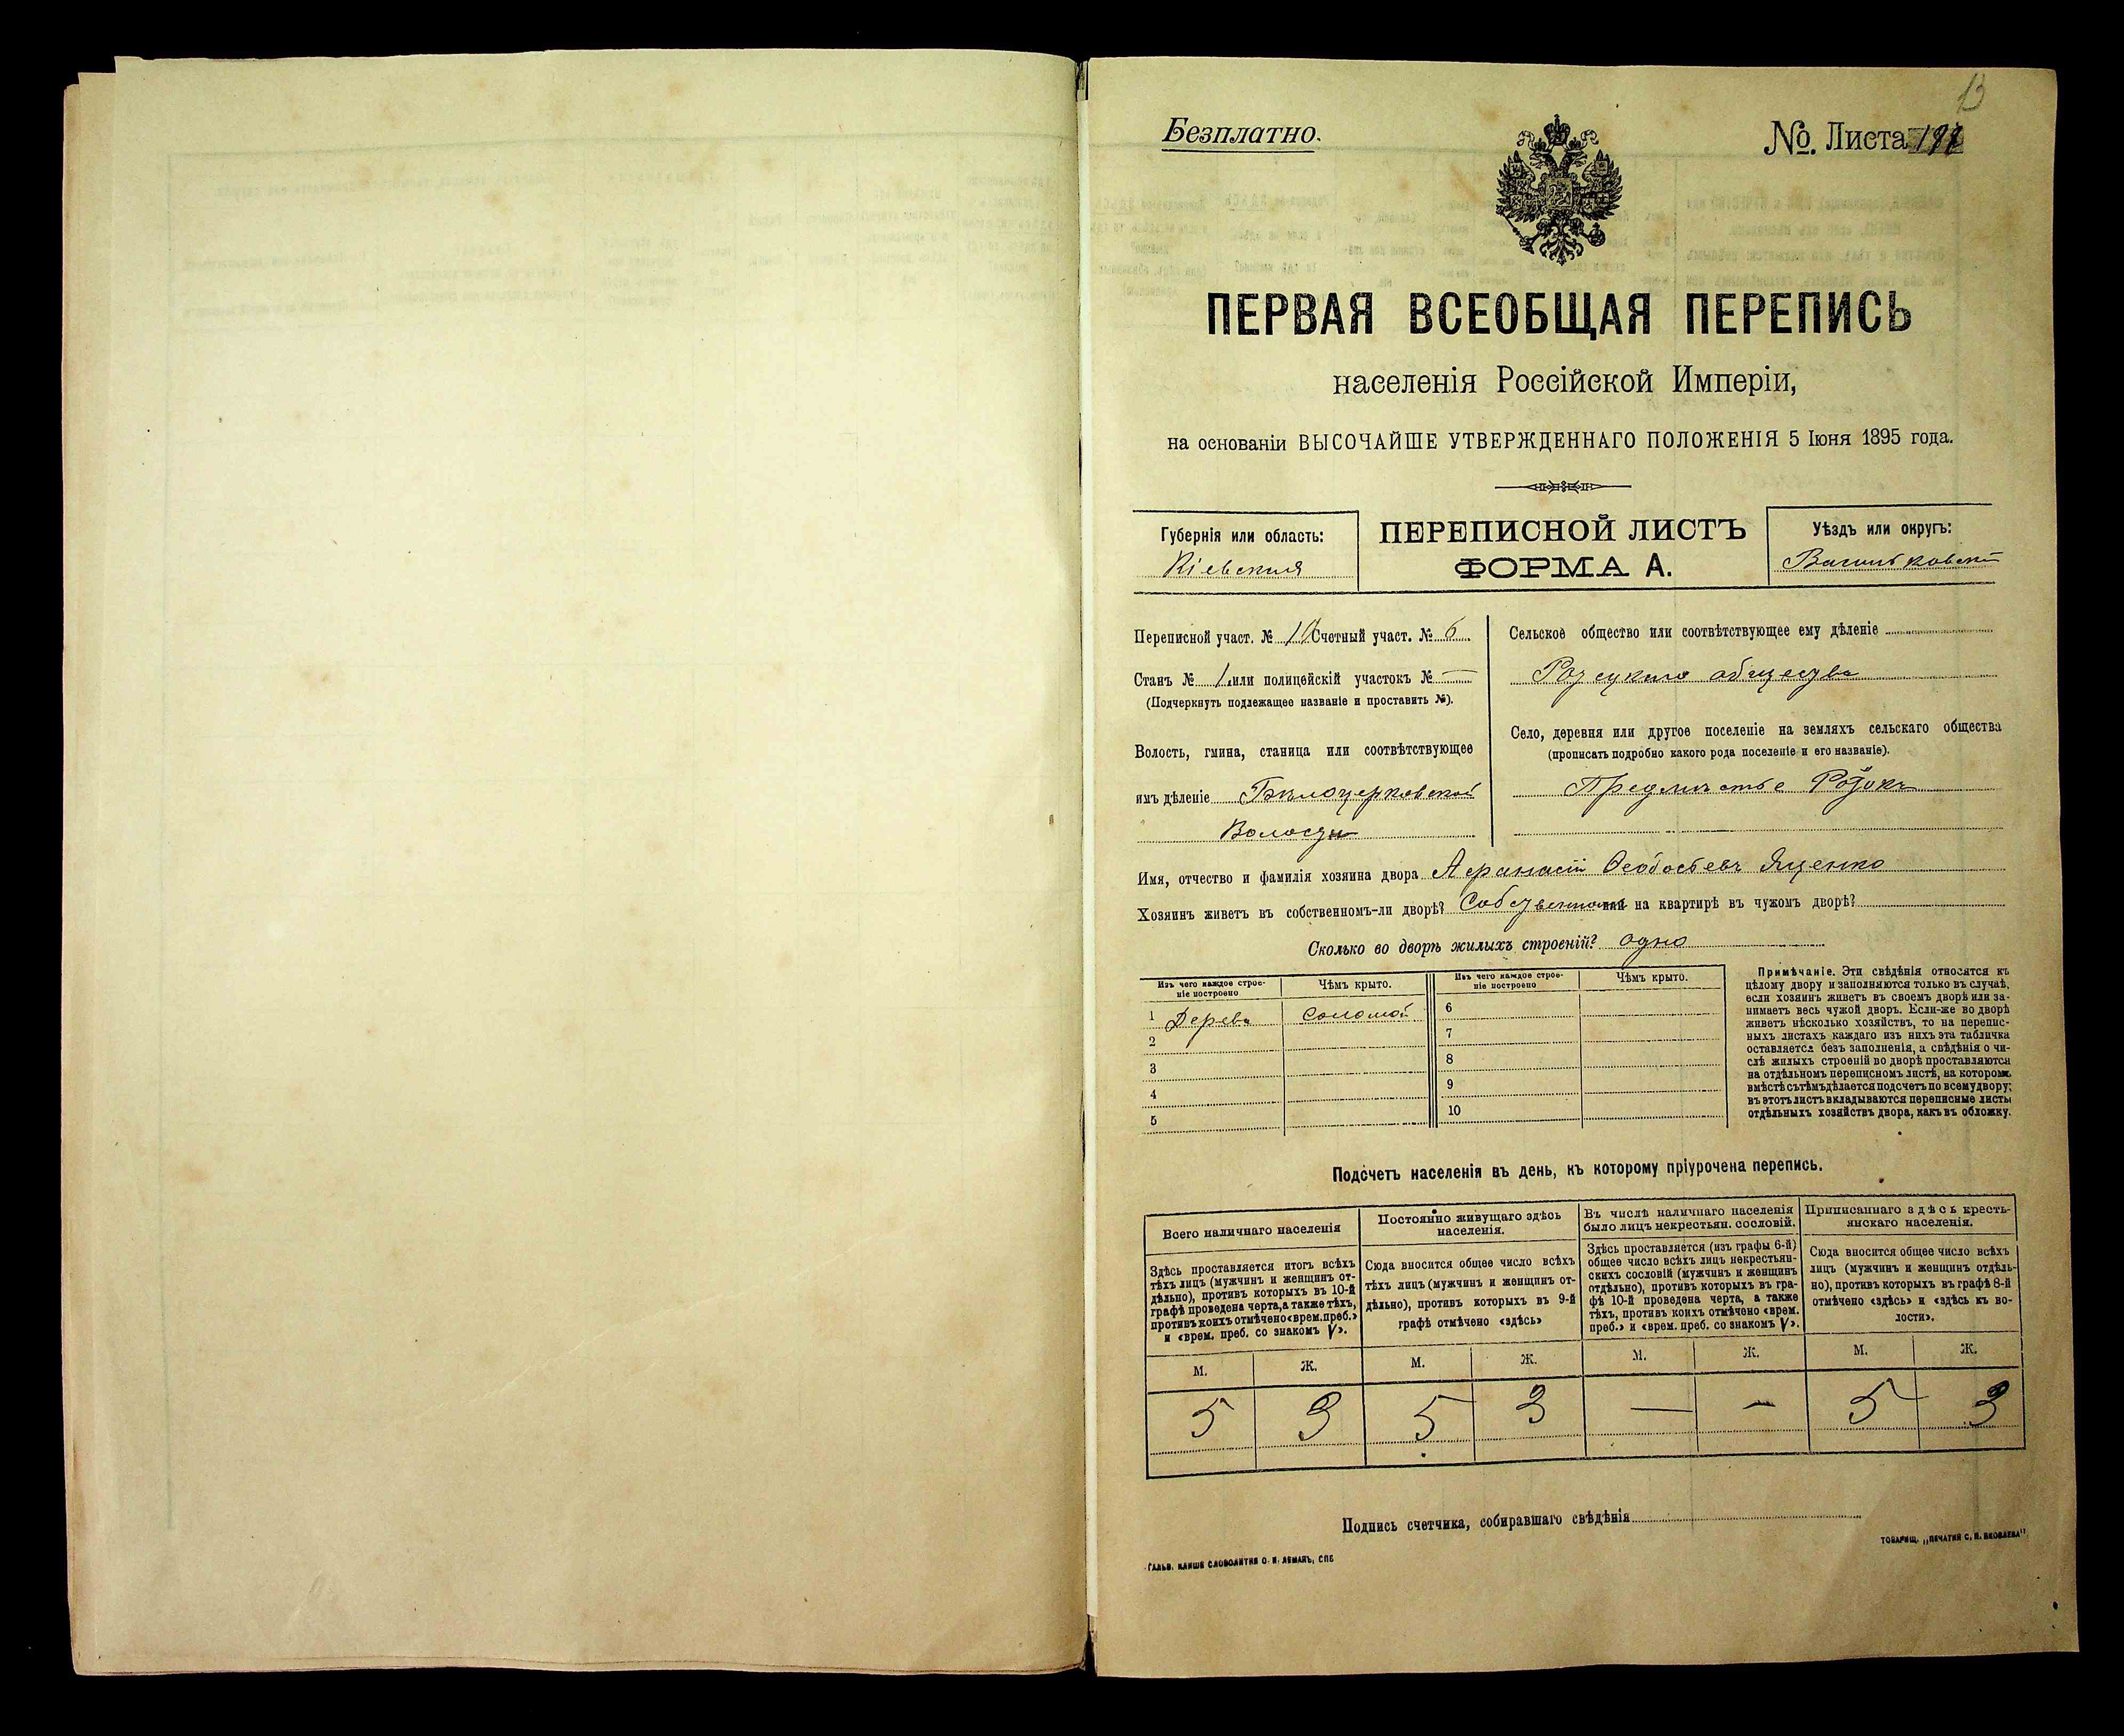 13
Безплатно.
№. Листа
ПЕРВАЯ ВСЕОБЩАЯ ПЕРЕПИСЬ
населенія Россійской Имперіи,
на основаніи ВЫСОЧАЙШЕ УТВЕРЖДЕННАГО ПОЛОЖЕНІЯ 5 Іюня 1895 года.
Губернія или область:
Кіевская
ПЕРЕПИСНОЙ ЛИСТЪ
ФОРМА А.
Уѣздъ или округъ:
Васильковскій
Переписной участ. № 10 Счетный участ. № 6
Станъ № 1 или полицейскій участокъ № —
(Подчеркнуть подлежащее названіе и проставить №).
Волость, гмина, станица или соотвѣтствующее
имъ дѣленіе Бѣлоцерковской
Волости
Сельское общество или соотвѣтствующее ему дѣленіе
общества
Село, деревня или другое поселеніе на земляхъ сельскаго общества
(прописать подробно какого рода поселеніе и его названіе).
Предмѣстье Ротокъ
Имя, отчество и фамилія хозяина двора Афанасій Ѳеодосіевъ Яценко
Хозяинъ живетъ въ собственномъ-ли дворѣ? Собственномъ или на квартирѣ въ чужомъ дворѣ?
Сколько во дворѣ жилыхъ строеній? одно
Изъ чего каждое строе-
ніе построено
Чѣмъ крыто.
Изъ чего каждое строе-
ніе построено
Чѣмъ крыто.
1 Дерева Соломой 6
2 7
3 8
4 9
5 10
Примѣчаніе. Эти свѣдѣнія относятся къ
цѣлому двору и заполняются только въ случаѣ,
если хозяинъ живетъ въ своемъ дворѣ или за-
нимаетъ весь чужой дворъ. Если-же во дворѣ
живетъ нѣсколько хозяйствъ, то на перепис-
ныхъ листахъ каждаго изъ нихъ эта табличка
оставляется безъ заполненія, а свѣдѣнія о чи-
слѣ жилыхъ строеній во дворѣ проставляются
на отдѣльномъ переписномъ листѣ, на которомъ
вмѣстѣ съ тѣмъ дѣлается подсчетъ по всему двору;
въ этотъ листъ вкладываются переписные листы
отдѣльныхъ хозяйствъ двора, какъ въ обложку.
Подсчетъ населенія въ день, къ которому пріурочена перепись.
Всего наличнаго населенія
Здѣсь проставляется итогъ всѣхъ
тѣхъ лицъ (мужчинъ и женщинъ от-
дѣльно), противъ которыхъ въ 10-й
графѣ проведена черта, а также тѣхъ,
противъ коихъ отмѣчено «врем. преб.»
и «врем. преб. со знакомъ V».
Постоянно живущаго здѣсь
населенія.
Сюда вносится общее число всѣхъ
тѣхъ лицъ (мужчинъ и женщинъ от-
дѣльно), противъ которыхъ въ 9-й
графѣ отмѣчено «здѣсь»
Въ числѣ наличнаго населенія
было лицъ некрестьян. сословій.
Здѣсь проставляется (изъ графы 6-й)
общее число всѣхъ лицъ некрестьян-
скихъ сословій (мужчинъ и женщинъ
отдѣльно), противъ которыхъ въ гра-
фѣ 10-й проведена черта, а также
тѣхъ, противъ коихъ отмѣчено «врем.
преб.» и «врем. преб. со знакомъ V».
Приписаннаго здѣсь кресть-
янскаго населенія.
Сюда вносится общее число всѣхъ
лицъ (мужчинъ и женщинъ отдѣль-
но), противъ которыхъ въ графѣ 8-й
отмѣчено «здѣсь» и «здѣсь къ во-
лости».
М. Ж. М. Ж. М. Ж. М. Ж.
5 3 5 3 — — 5 3
Подпись счетчика, собиравшаго свѣдѣнія
ГАЛЬВ. КЛИШЕ СЛОВОЛИТНЯ О. И. ЛЕМАНЪ, СПБ
ТОВАРИЩ. „ПЕЧАТНЯ С. П. ЯКОВЛЕВА"